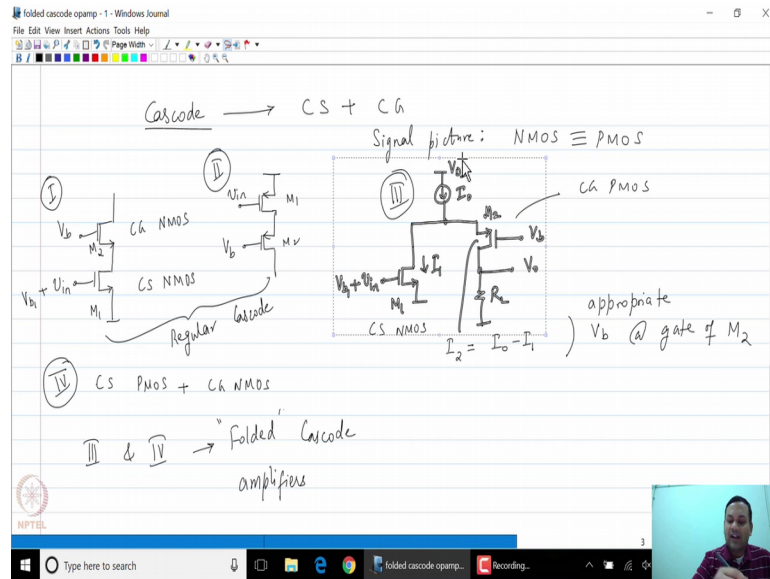 folded cascode opamp - 1 - Windows Journal
File Edit View Insert Actions Tools Help
Page Width
B I
Cascode → CS + CG
Signal picture: NMOS ≡ PMOS
I
Vb
M2
CG NMOS
Vb1 + Vin
M1
CS NMOS
II
Vin
M1
Vb
M2
Regular Cascode
III
VDD
I0
M2
CG PMOS
Vb
V0
RL
I1
Vb1 + Vin
M1
CS NMOS
I2 = I0 - I1
) appropriate
Vb @ gate of M2
IV CS PMOS + CG NMOS
III & IV → "Folded" Cascode
amplifiers
NPTEL
3
Type here to search
folded cascode opamp...
Recording...